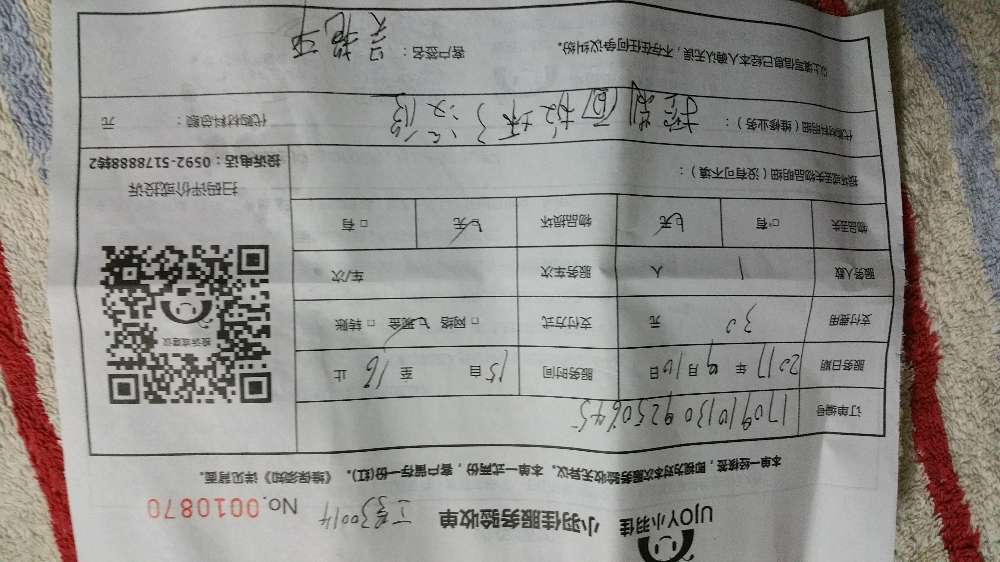 UJOY小羽佳 小羽佳服务验收单 工号30014 No.0010870
本单一经核签，即视为对本次服务验收无异议。本单一式两份，客户留存一份(红)。《维保须知》详见背面。
订单编号 170910130925064 5
服务日期 2017年9月10日 服务时间 15自 至 16 止
支付费用 30 元 支付方式 □网络 现金 □转账
服务人数 1 人 服务车次 车/次
物品丢失 □有 无 物品损坏 无 □有
损坏或丢失物品明细（没有可不填）：
代购材料明细（维修业务）： 坏了没修 代购材料总额： 元
以上填写信息已经本人确认无误，不存在任何争议纠纷。 客户签名：
投诉或建议
扫码评价或投诉
投诉电话：0592-5178888转2